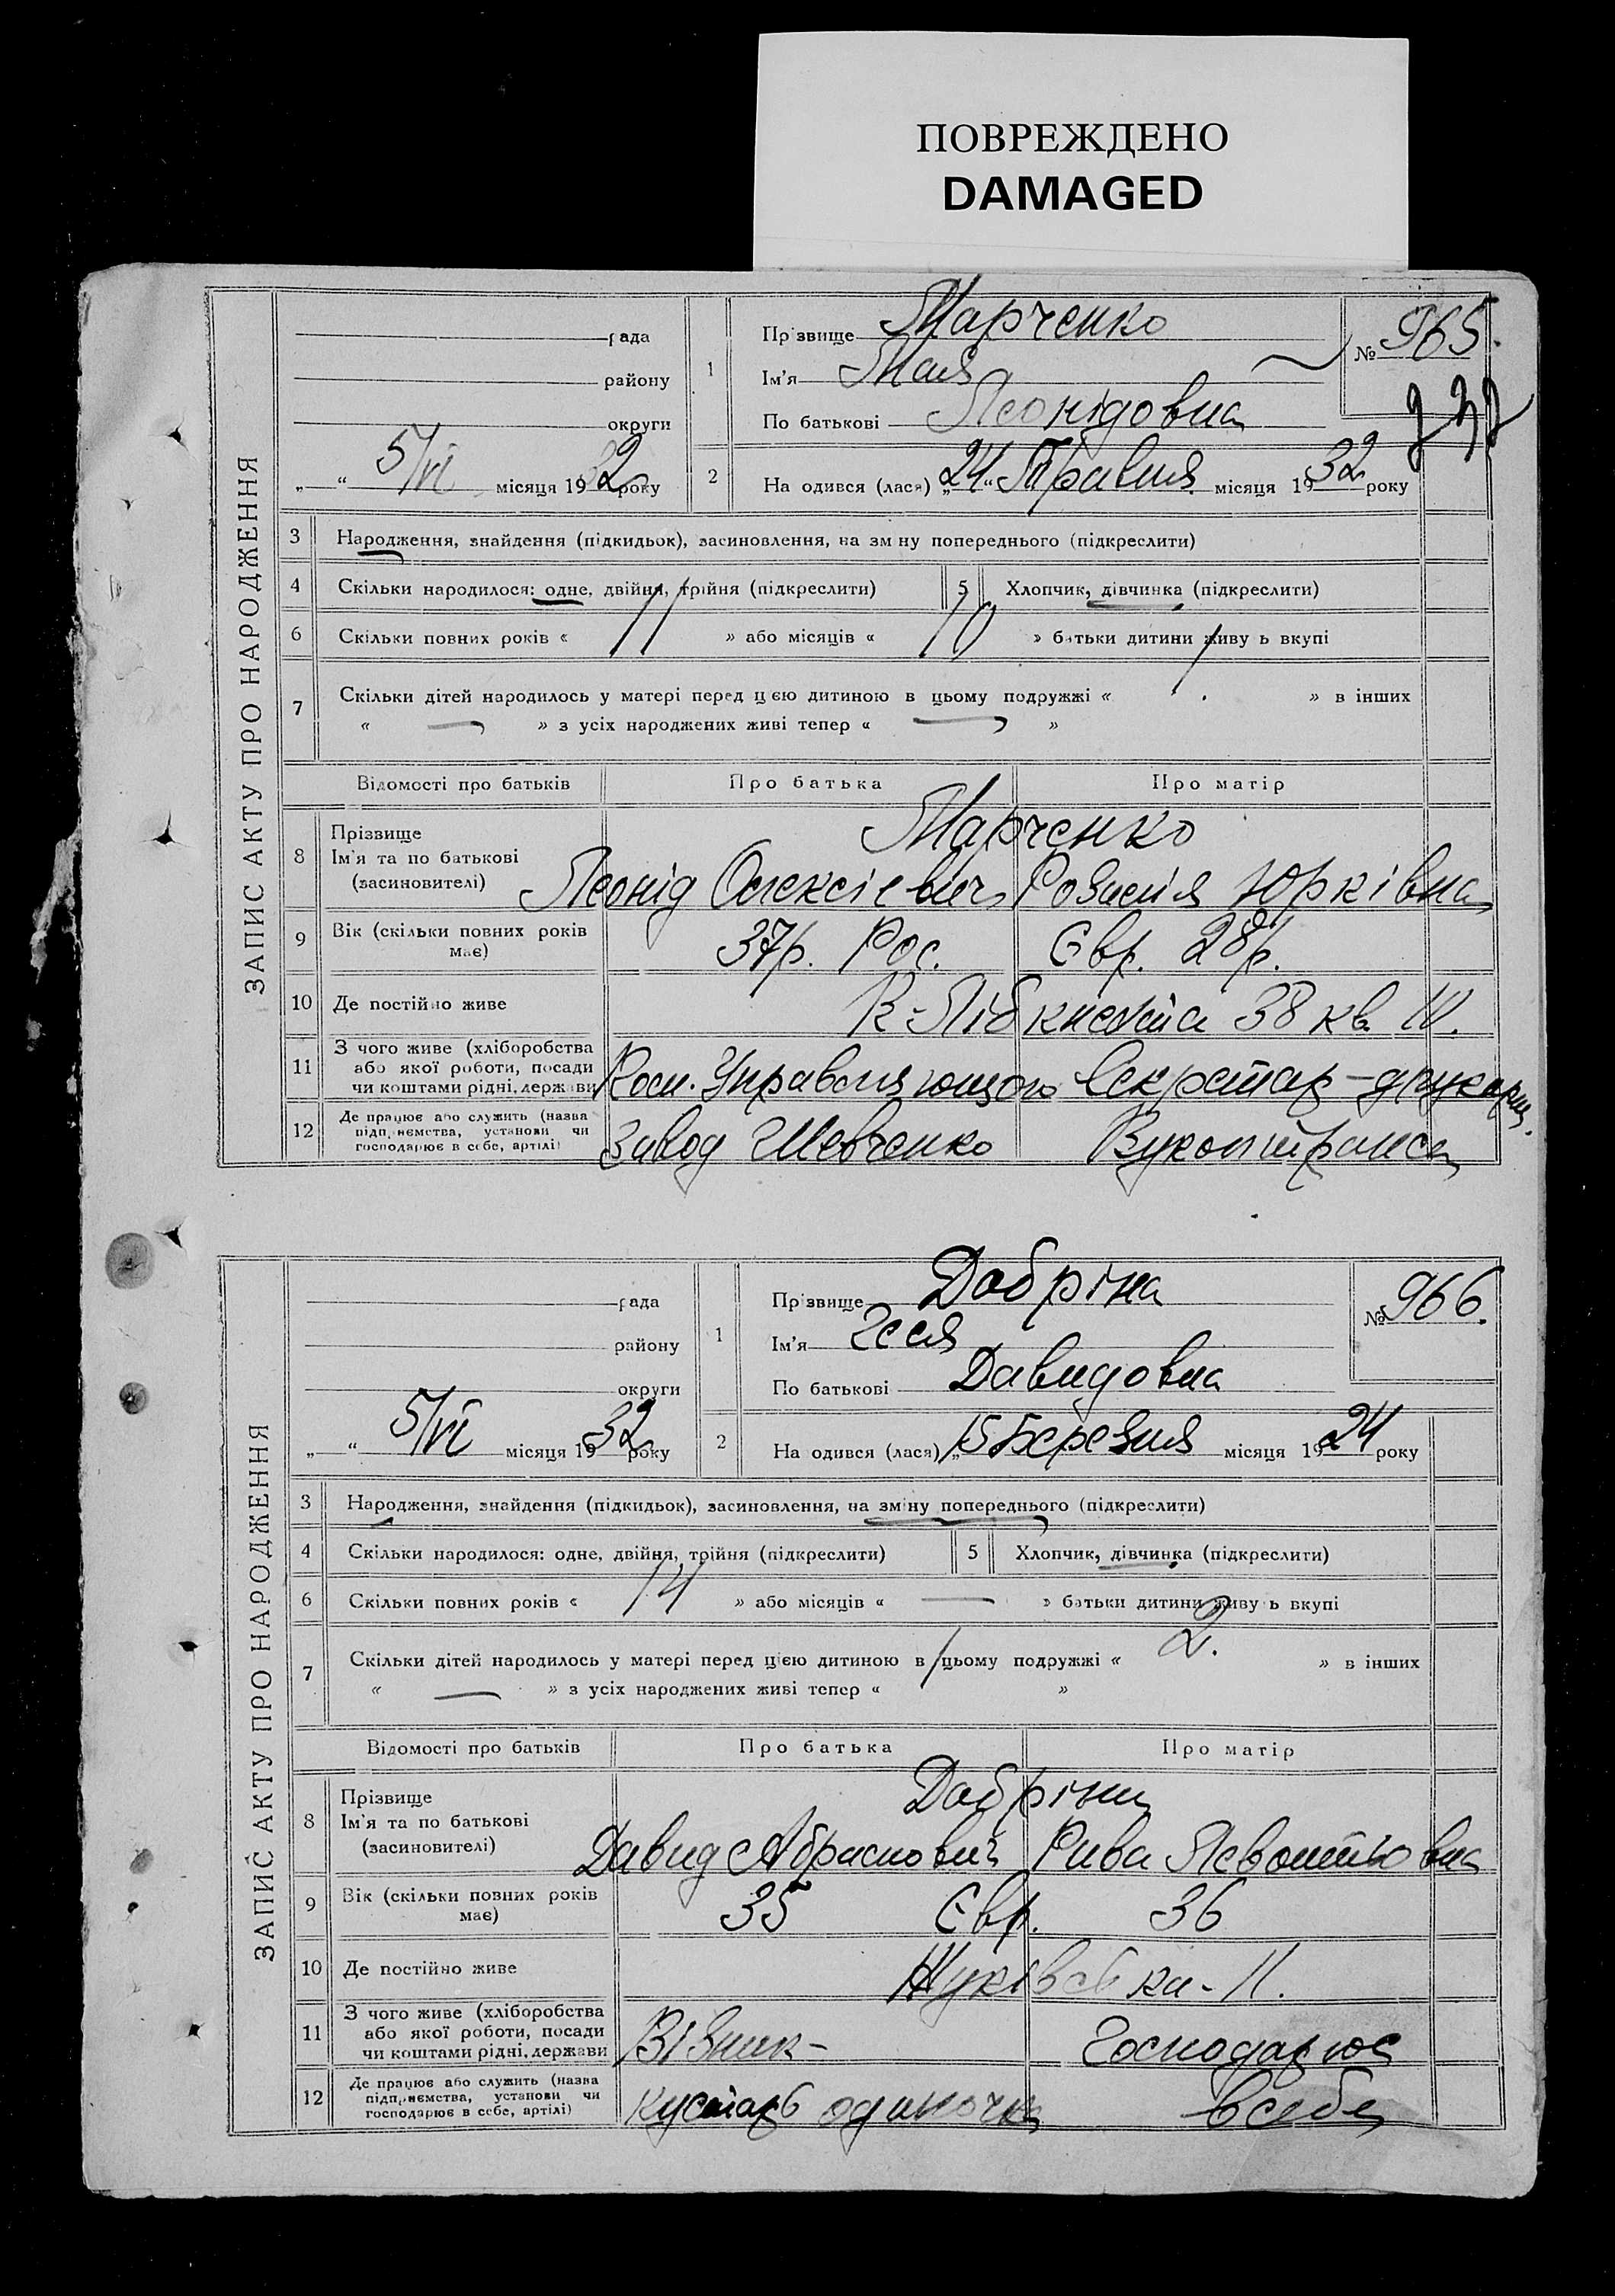 ПОВРЕЖДЕНО
DAMAGED
ЗАПИС АКТУ ПРО НАРОДЖЕННЯ
рада
району
округи
„ “ 5/VI місяця 1932 року
1
Прізвище Марченко
Ім’я Мая
По батькові Леонідовна
№ 965.
2
На одився (лася) „24“ Травня місяця 1932 року
3 Народження, знайдення (підкидьок), засиновлення, на зм ну попереднього (підкреслити)
4 Скільки народилося: одне, двійня, трійня (підкреслити) 5 Хлопчик, дівчинка (підкреслити)
6 Скільки повних років « 11 » або місяців « 10 » батьки дитини живу ь вкупі
7 Скільки дітей народилось у матері перед цією дитиною в цьому подружжі « 1 » в інших
« — » з усіх народжених живі тепер « — »
Відомості про батьків Про батька Про матір
8 Прізвище Марченко
Ім’я та по батькові
(засиновителі) Леонід Олексієвич Розалія Юрківна
9 Вік (скільки повних років має) 37 р. Рос. Євр. 28 р.
10 Де постійно живе К-Лібкнехта 38 кв. 10.
11 З чого живе (хліборобства
або якої роботи, посади
чи коштами рідні, держави Управляющого Секретар-друкарщ.
12 Де працює або служить (назва
підприємства, установи чи
господарює в себе, артілі) Завод Шевченко
ЗАПИС АКТУ ПРО НАРОДЖЕННЯ
рада
району
округи
„ “ 5/VI місяця 1932 року
1
Прізвище Добріна
Ім’я Геся
По батькові Давидовна
№ 966.
2
На одився (лася) „15 Березня місяця 1924 року
3 Народження, знайдення (підкидьок), засиновлення, на зміну попереднього (підкреслити)
4 Скільки народилося: одне, двійня, трійня (підкреслити) 5 Хлопчик, дівчинка (підкреслити)
6 Скільки повних років « 14 » або місяців « — » батьки дитини живу ь вкупі
7 Скільки дітей народилось у матері перед цією дитиною в цьому подружжі « 2. » в інших
« — » з усіх народжених живі тепер « 1 »
Відомості про батьків Про батька Про матір
8 Прізвище Добріни
Ім’я та по батькові
(засиновителі) Давид Абрамович Рива
9 Вік (скільки повних років має) 35 Євр. 36
10 Де постійно живе Жуківська - 11.
11 З чого живе (хліборобства
або якої роботи, посади
чи коштами рідні, держави Візник - Господарює
12 Де працює або служить (назва
підприємства, установи чи
господарює в себе, артілі) кустарь одиночка в себе